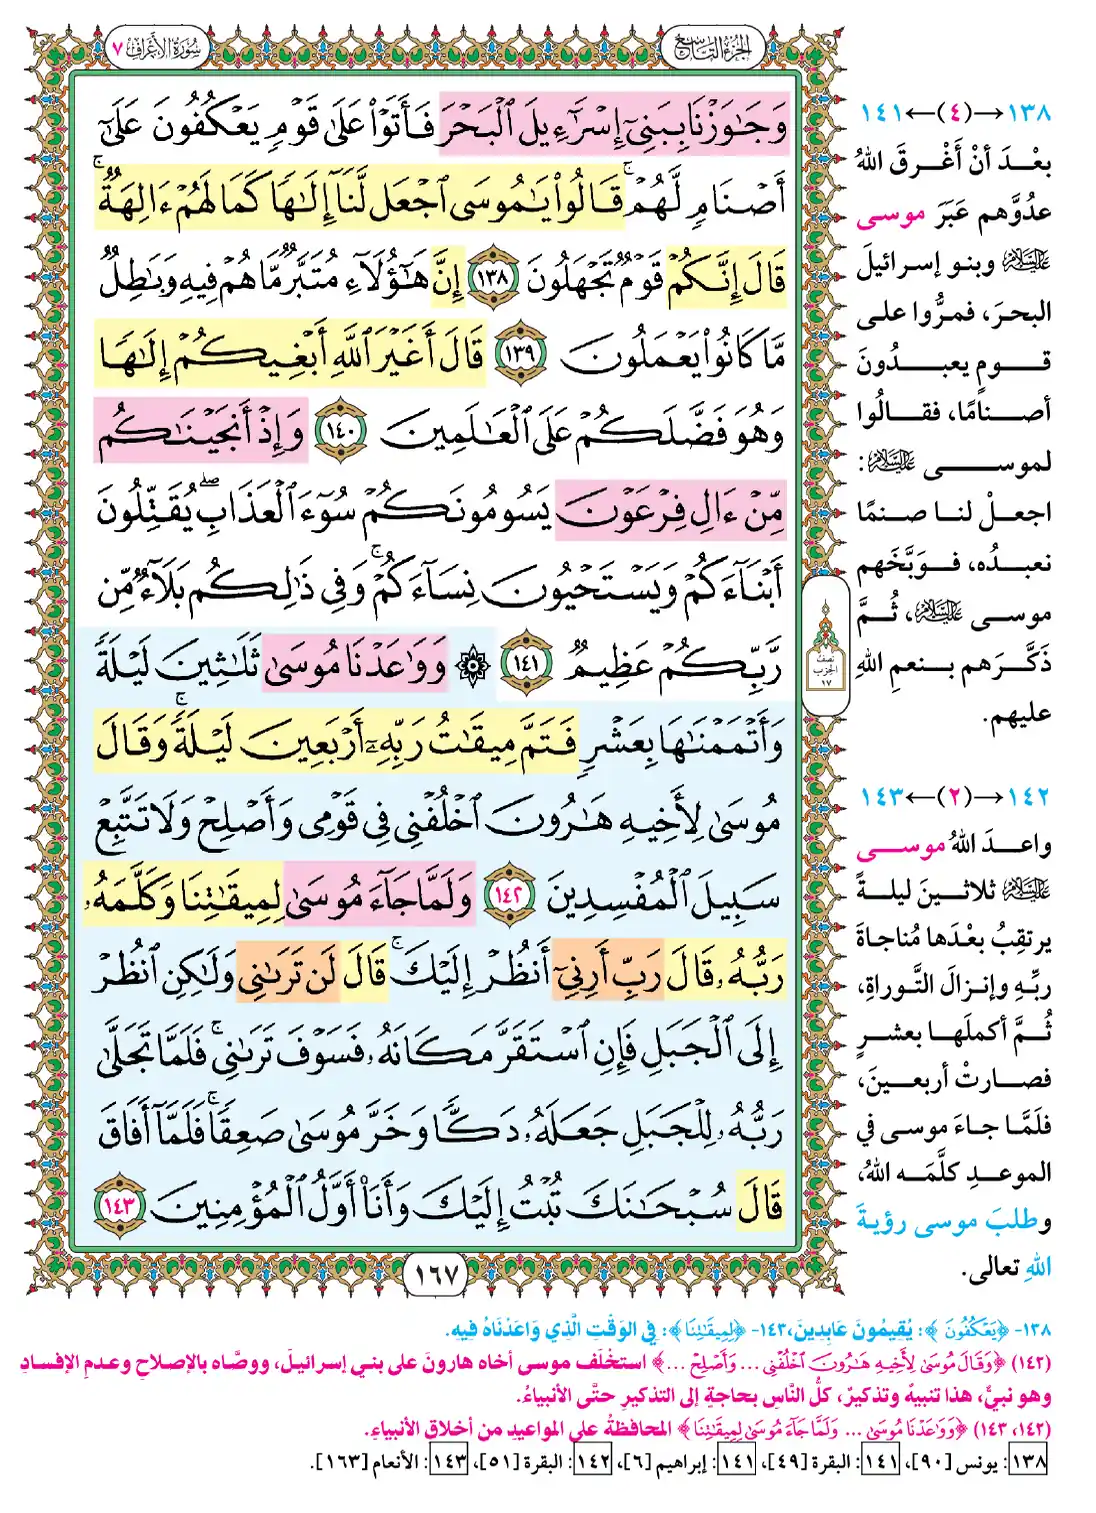 الجزء التاسع
سورة الأعراف ٧
وَجَٰوَزْنَا بِبَنِىٓ إِسْرَٰٓءِيلَ ٱلْبَحْرَ فَأَتَوْا۟ عَلَىٰ قَوْمٍ يَعْكُفُونَ عَلَىٰٓ
أَصْنَامٍ لَّهُمْ ۚ قَالُوا۟ يَٰمُوسَى ٱجْعَل لَّنَآ إِلَٰهًا كَمَا لَهُمْ ءَالِهَةٌ ۚ
قَالَ إِنَّكُمْ قَوْمٌ تَجْهَلُونَ ١٣٨ إِنَّ هَٰٓؤُلَآءِ مُتَبَّرٌ مَّا هُمْ فِيهِ وَبَٰطِلٌ
مَّا كَانُوا۟ يَعْمَلُونَ ١٣٩ قَالَ أَغَيْرَ ٱللَّهِ أَبْغِيكُمْ إِلَٰهًا
وَهُوَ فَضَّلَكُمْ عَلَى ٱلْعَٰلَمِينَ ١٤٠ وَإِذْ أَنجَيْنَٰكُم
مِّنْ ءَالِ فِرْعَوْنَ يَسُومُونَكُمْ سُوٓءَ ٱلْعَذَابِ ۖ يُقَتِّلُونَ
أَبْنَآءَكُمْ وَيَسْتَحْيُونَ نِسَآءَكُمْ ۚ وَفِى ذَٰلِكُم بَلَآءٌ مِّن
رَّبِّكُمْ عَظِيمٌ ١٤١ ۞ وَوَٰعَدْنَا مُوسَىٰ ثَلَٰثِينَ لَيْلَةً
وَأَتْمَمْنَٰهَا بِعَشْرٍ فَتَمَّ مِيقَٰتُ رَبِّهِۦٓ أَرْبَعِينَ لَيْلَةً ۚ وَقَالَ
مُوسَىٰ لِأَخِيهِ هَٰرُونَ ٱخْلُفْنِى فِى قَوْمِى وَأَصْلِحْ وَلَا تَتَّبِعْ
سَبِيلَ ٱلْمُفْسِدِينَ ١٤٢ وَلَمَّا جَآءَ مُوسَىٰ لِمِيقَٰتِنَا وَكَلَّمَهُۥ
رَبُّهُۥ قَالَ رَبِّ أَرِنِىٓ أَنظُرْ إِلَيْكَ ۚ قَالَ لَن تَرَىٰنِى وَلَٰكِنِ ٱنظُرْ
إِلَى ٱلْجَبَلِ فَإِنِ ٱسْتَقَرَّ مَكَانَهُۥ فَسَوْفَ تَرَىٰنِى ۚ فَلَمَّا تَجَلَّىٰ
رَبُّهُۥ لِلْجَبَلِ جَعَلَهُۥ دَكًّا وَخَرَّ مُوسَىٰ صَعِقًا ۚ فَلَمَّآ أَفَاقَ
قَالَ سُبْحَٰنَكَ تُبْتُ إِلَيْكَ وَأَنَا۠ أَوَّلُ ٱلْمُؤْمِنِينَ ١٤٣
١٦٧
نصف
الحزب
١٧
١٣٨→(٤)←١٤١
بعْدَ أنْ أَغْرقَ اللهُ
عدُوَّهم عَبَرَ موسى
عليه السلام وبنو إسرائيلَ
البحرَ، فمرُّوا على
قومٍ يعبدُونَ
أصنامًا، فقالُوا
لموسى عليه السلام:
اجعلْ لنا صنمًا
نعبدُه، فوَبَّخَهم
موسى عليه السلام، ثُمَّ
ذَكَّرَهم بنعمِ اللهِ
عليهم.
١٤٢→(٢)←١٤٣
واعدَ اللهُ موسى
عليه السلام ثلاثينَ ليلةً
يرتقِبُ بعْدَها مُناجاةَ
ربِّهِ وإنزالَ التَّوراةِ،
ثُمَّ أكملَها بعشرٍ
فصارتْ أربعينَ،
فلَمَّا جاءَ موسى في
الموعدِ كلَّمَه اللهُ،
وطلبَ موسى رؤيةَ
اللهِ تعالى.
١٣٨- ﴿يَعْكُفُونَ﴾: يُقِيمُونَ عَابِدِينَ، ١٤٣- ﴿لِمِيقَٰتِنَا﴾: فِي الوَقْتِ الَّذِي وَاعَدْنَاهُ فِيهِ.
(١٤٢) ﴿وَقَالَ مُوسَىٰ لِأَخِيهِ هَٰرُونَ ٱخْلُفْنِى ... وَأَصْلِحْ ...﴾ استخْلَف موسى أخاه هارونَ على بني إسرائيلَ، ووصَّاه بالإصلاحِ وعدمِ الإفسادِ
وهو نبيٌّ، هذا تنبيهٌ وتذكيرٌ، كلُّ النَّاسِ بحاجةٍ إلى التذكيرِ حتَّى الأنبياءُ.
(١٤٢، ١٤٣) ﴿وَوَٰعَدْنَا مُوسَىٰ ... وَلَمَّا جَآءَ مُوسَىٰ لِمِيقَٰتِنَا﴾ المحافظةُ على المواعيدِ من أخلاقِ الأنبياءِ.
١٣٨: يونس [٩٠]، ١٤١: البقرة [٤٩]، ١٤١: إبراهيم [٦]، ١٤٢: البقرة [٥١]، ١٤٣: الأنعام [١٦٣].